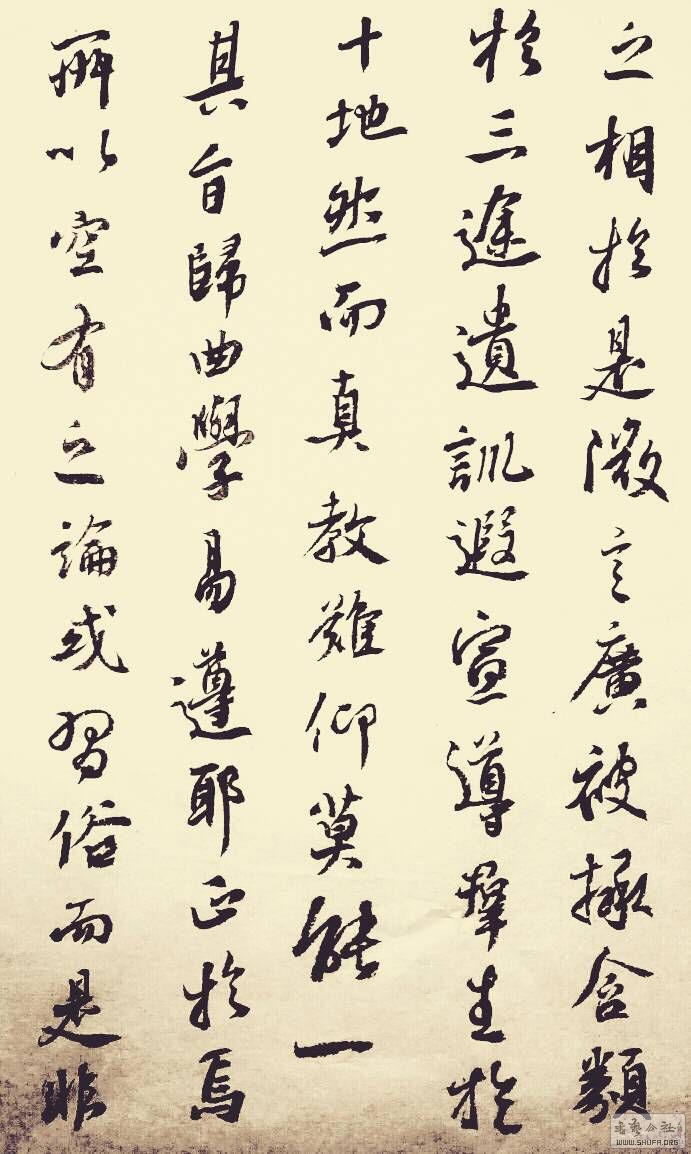 之相於是微言廣被拯含類
於三途遺訓遐宣導群生於
十地然而真教難仰莫能一
其旨歸曲學易遵耶正於焉
所以空有之論或習俗而是非
WWW.SHUFA.ORG